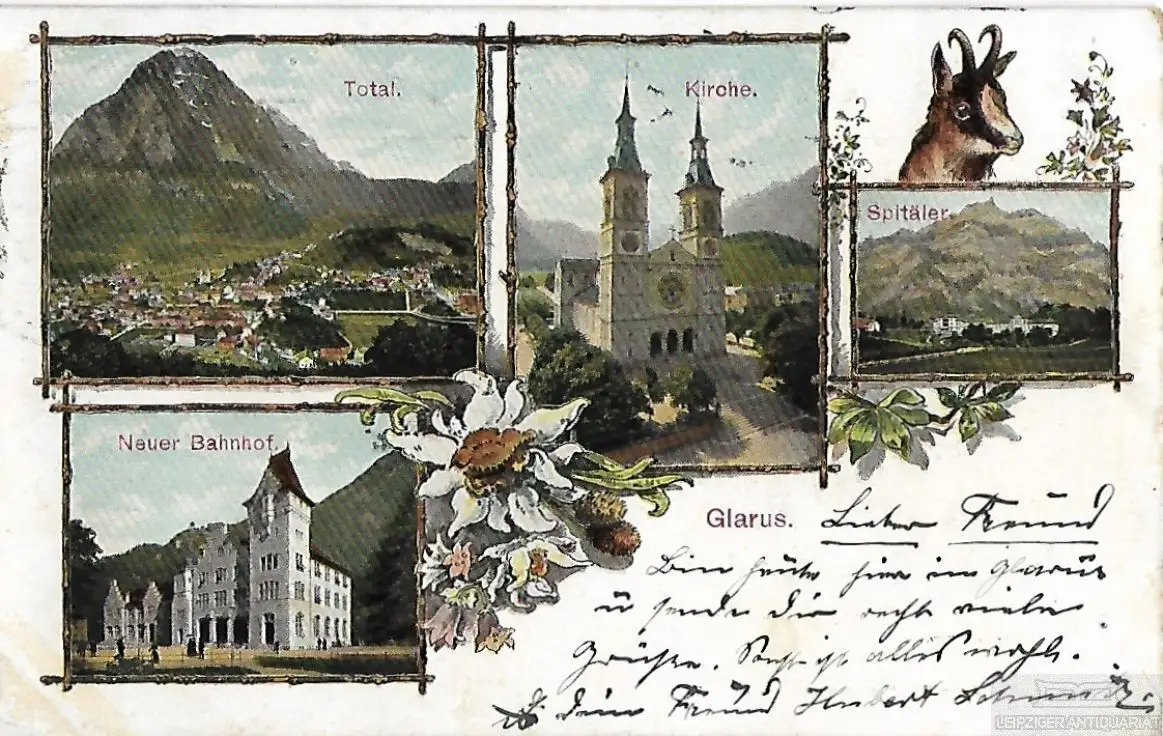 Total.
Kirche.
Spitäler.
Neuer Bahnhof.
Glarus. Lieber Freund
Bin heute hier in Glarus
u sende dir recht viele
Grüsse. Sonst ist alles wohl.
dein Freund Herbert
LEIPZIGER ANTIQUARIAT